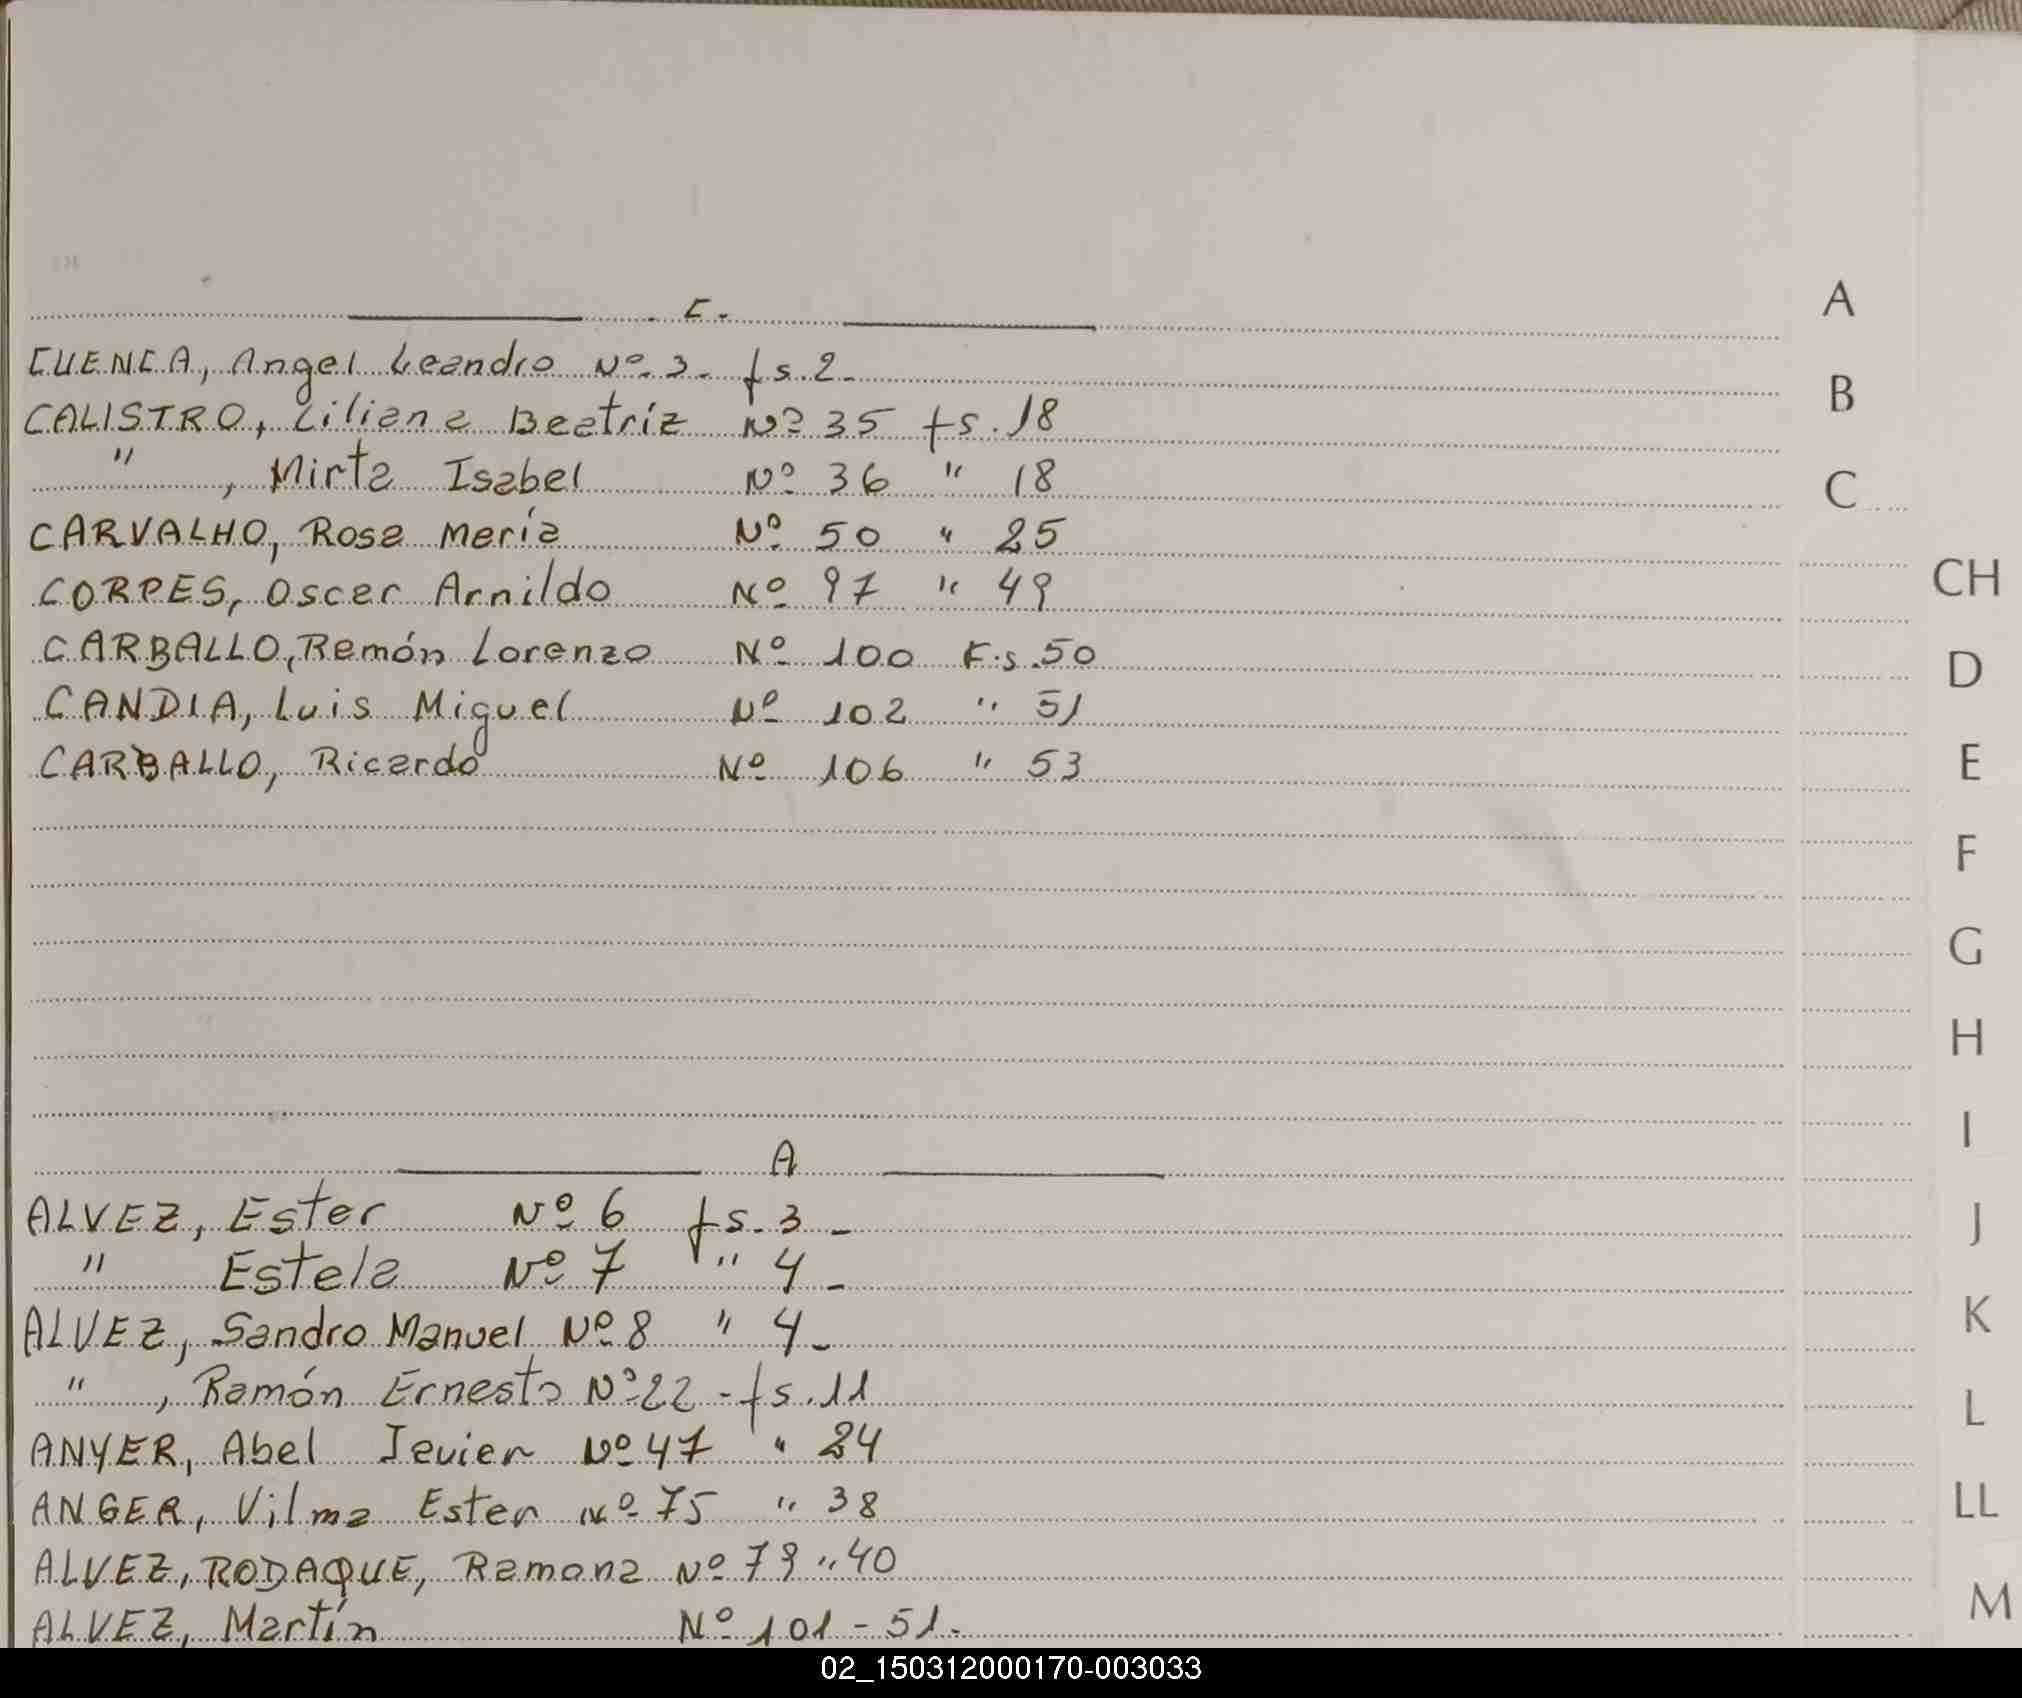 C.
CUENCA, Angel Leandro Nº 3. fs. 2.
CALISTRO, Liliana Beatriz Nº 35 fs. 18
" , Mirta Isabel Nº 36 " 18
CARVALHO, Rosa María Nº 50 " 25
CORPES, Oscar Arnildo Nº 97 " 49
CARBALLO, Ramón Lorenzo Nº 100 Fs. 50
CANDIA, Luis Miguel Nº 102 " 51
CARBALLO, Ricardo Nº 106 " 53
A
ALVEZ, Ester Nº 6 fs. 3 -
" Estela Nº 7 " 4 -
ALVEZ, Sandro Manuel Nº 8 " 4 -
" , Ramón Ernesto Nº 22 - fs. 11
ANYER, Abel Javier Nº 47 " 24
ANGER, Vilma Ester Nº 75 " 38
ALVEZ, RODAQUE, Ramona Nº 79 " 40
ALVEZ, Martín Nº 101 - 51.
A
B
C
CH
D
E
F
G
H
I
J
K
L
LL
M
02_150312000170-003033